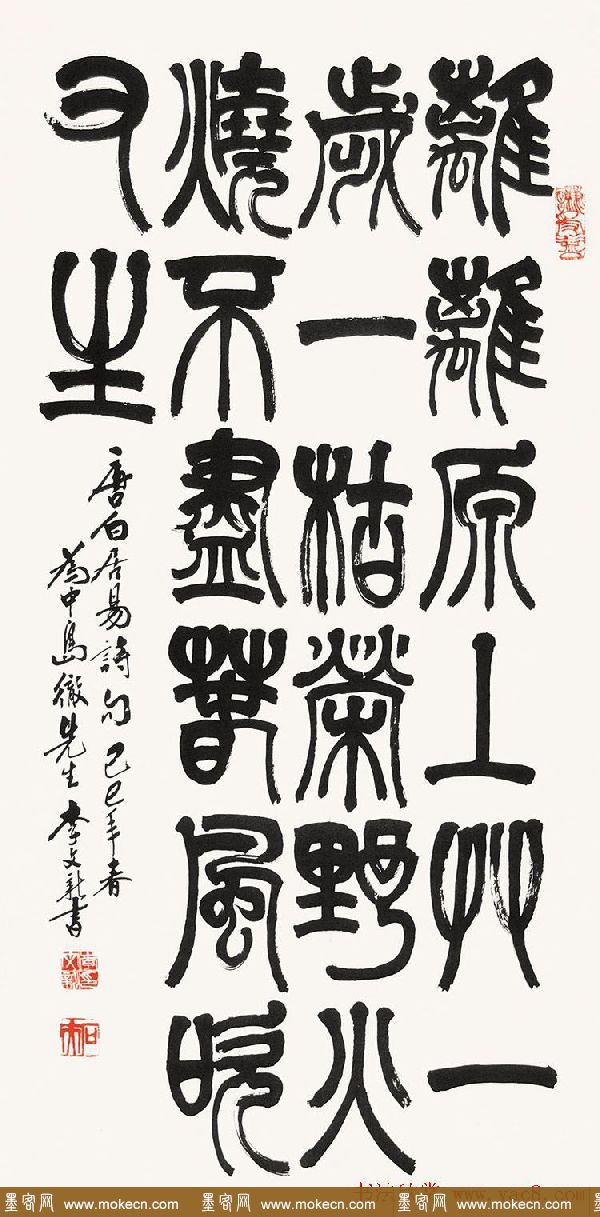 離離原上艸一
歲一枯榮野火
燒不盡春風吹
又生
唐白居易詩句 己巳年春
為中島徹先生 李文新書
www.yac8.com
墨客网 www.mokecn.com 墨客网 www.mokecn.com 墨客网 www.mokecn.com